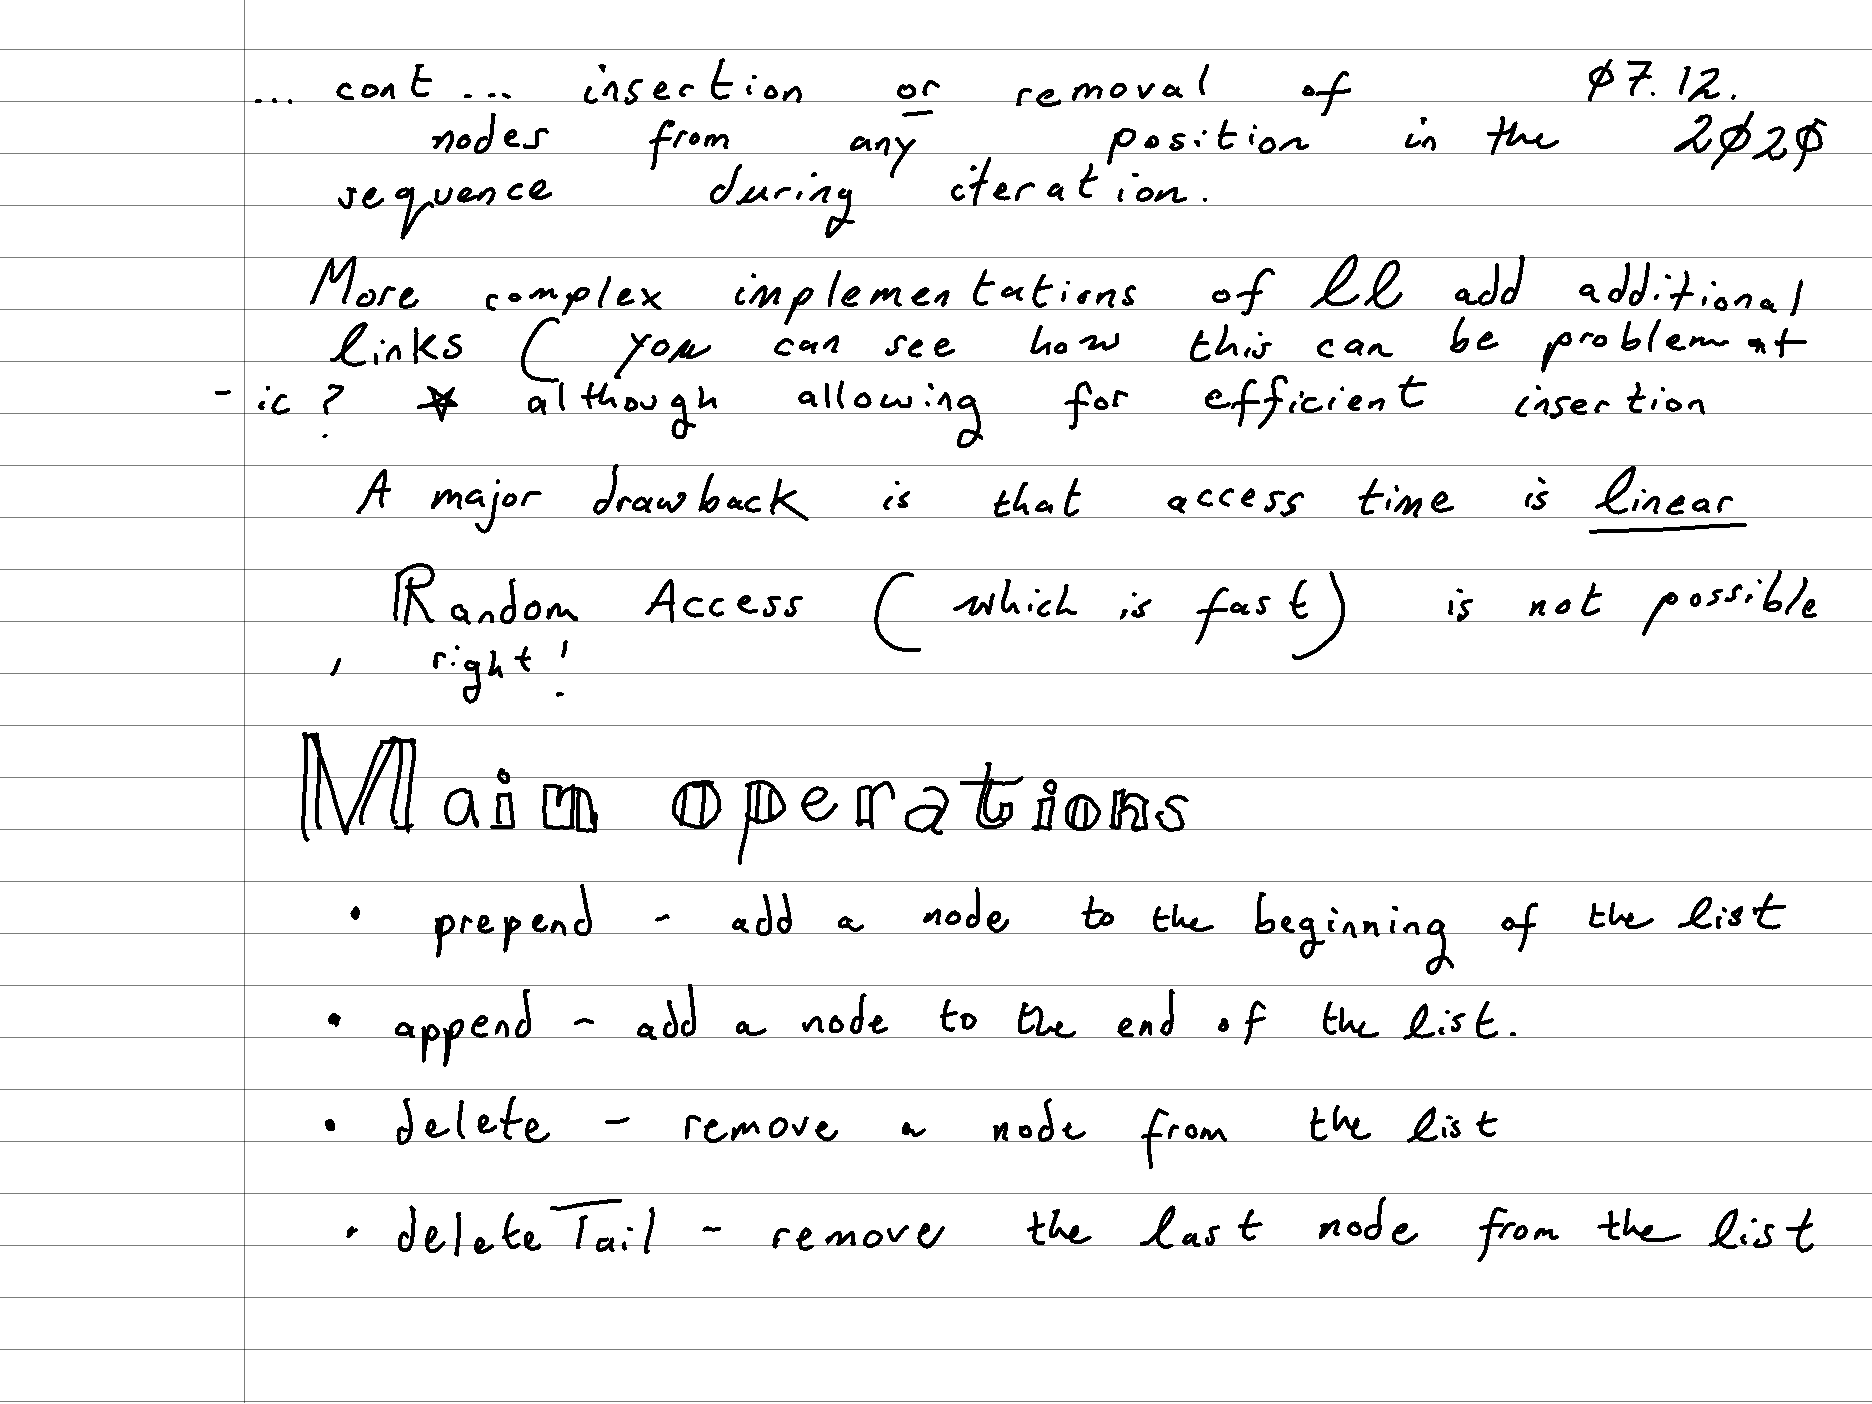 ... cont ... insertion or removal of ø7.12.
nodes from any position in the 2ø2ø
sequence during iteration.
More complex implementations of ll add additional
links ( you can see how this can be problemat
- ic ? ★ although allowing for efficient insertion
A major drawback is that access time is linear
Random Access ( which is fast ) is not possible
, right !
Main operations
• prepend - add a node to the beginning of the list
• append - add a node to the end of the list.
• delete - remove a node from the list
• deleteTail - remove the last node from the list